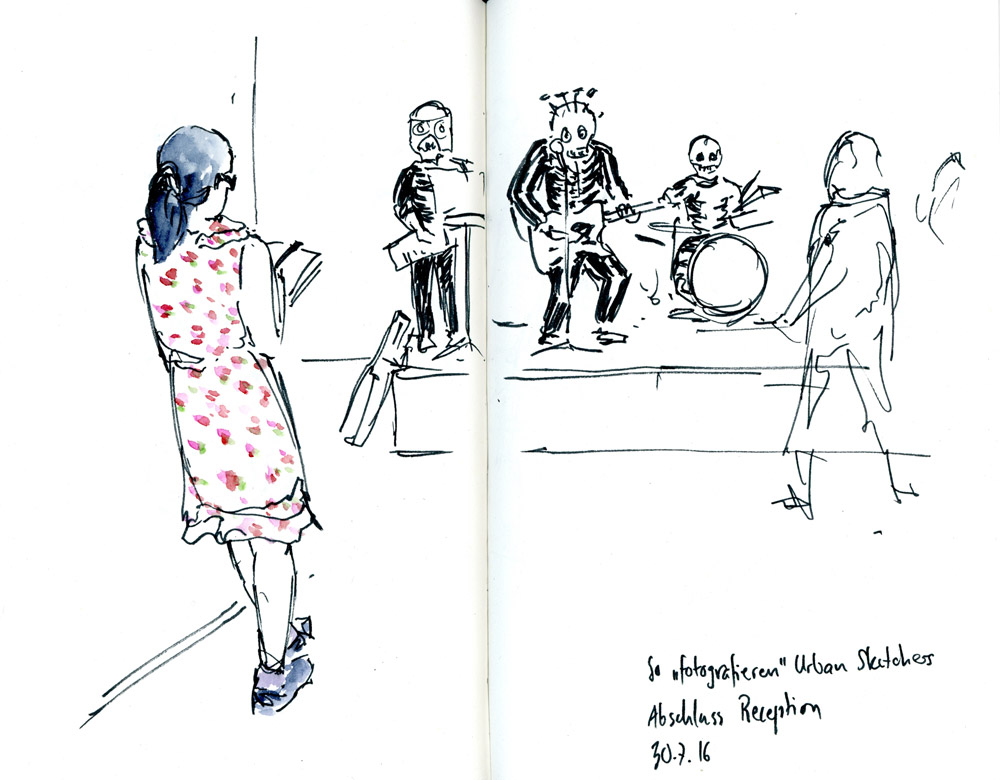 So „fotografieren" Urban Sketchers
Abschluss Reception
30.7.16